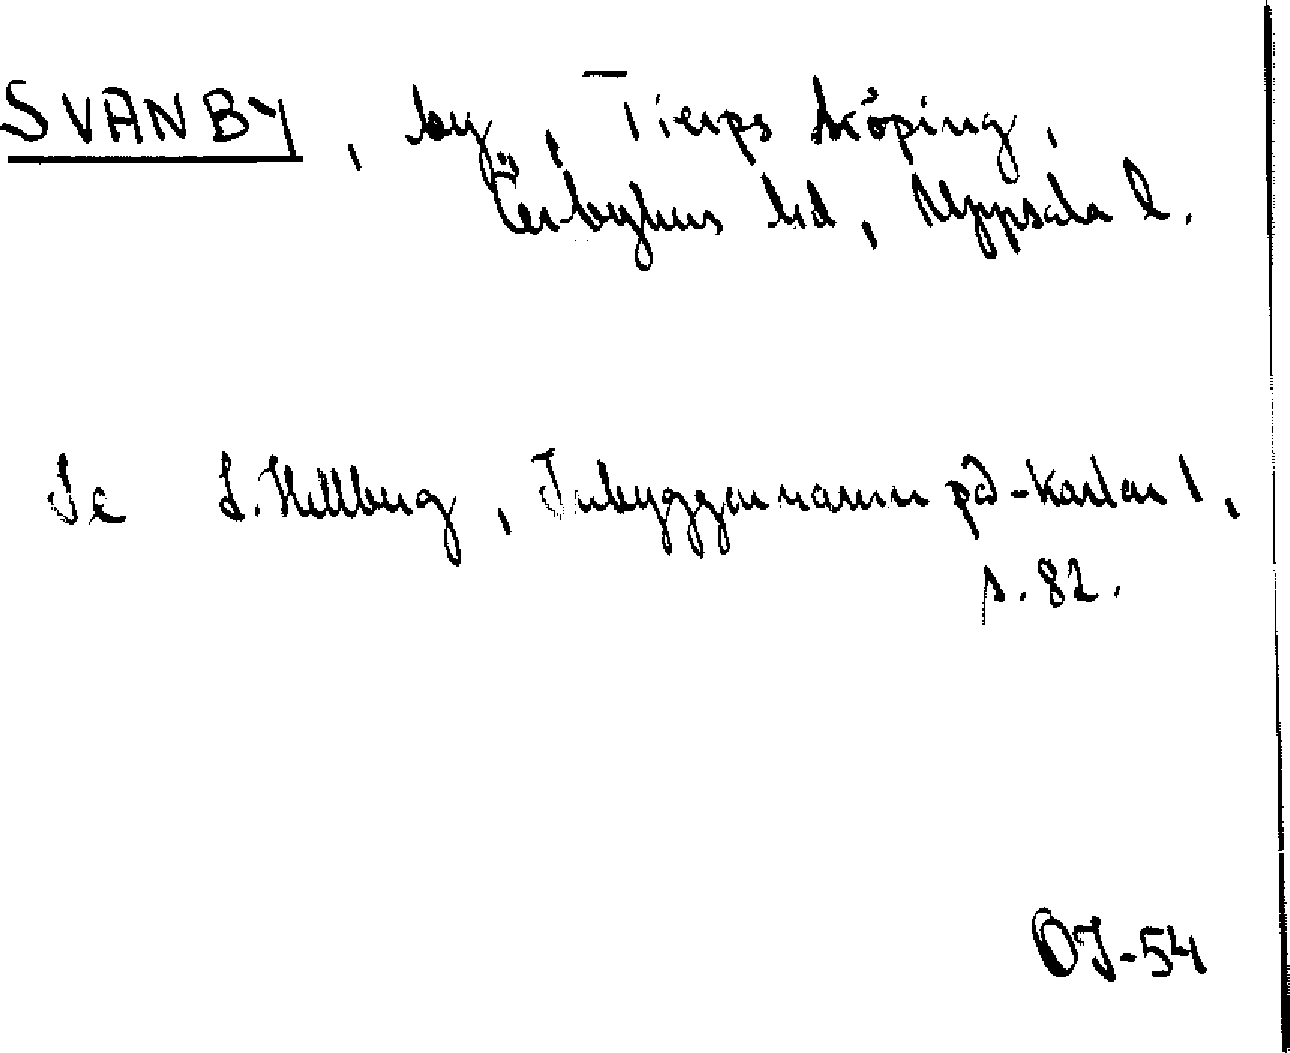 SVANBY, by, Tierps köping,
Örbyhus hd, Uppsala l.
Se L. Hellberg, Inbyggarnamn på -karlar 1,
s. 82.
OJ-54